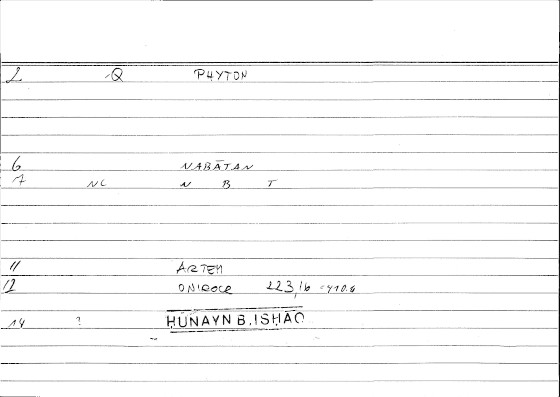 2 -Q PHYTON
6 NABĀTAN
7 NC N B T
11 ARTEM
12 ONIROCR 223,16 = 410.6
14 ? ḤUNAYN B. ISḤĀQ